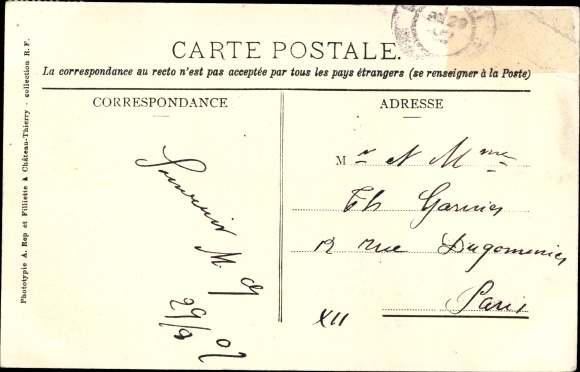 CARTE POSTALE.
La correspondance au recto n'est pas acceptée par tous les pays étrangers (se renseigner à la Poste)
CORRESPONDANCE
Souvenir M. G
29/8 07
ADRESSE
Mr et Mme
Th Garnier
12 rue Dugommier
Paris
XII
Phototypie A. Rep et Filliette à Château-Thierry - collection R. F.